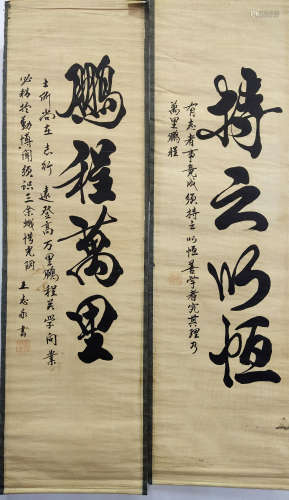 持之以恆
有志者事竟成须持之以恆善学者究其理乃
萬里鹏程
鵬程萬里
士所尚在志行遠登高万里鹏程关学问業
必精於勤博闻频识三余
惜光阴
王志 书